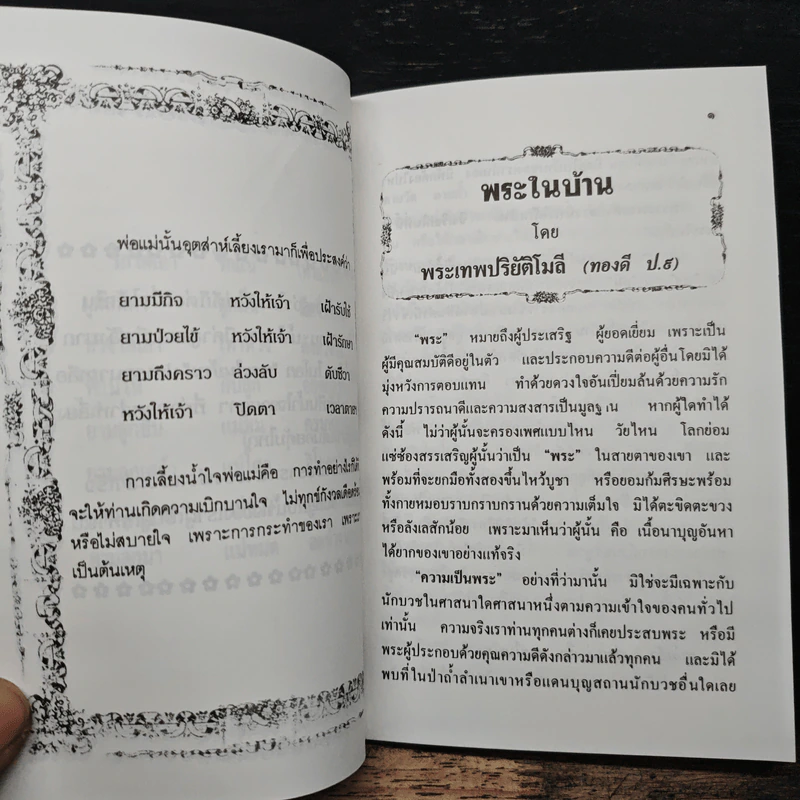 พ่อแม่นั้นอุตส่าห์เลี้ยงเรามาก็เพื่อประสงค์ว่า
ยามมีกิจ หวังให้เจ้า เฝ้ารับใช้
ยามป่วยไข้ หวังให้เจ้า เฝ้ารักษา
ยามถึงคราว ล่วงลับ ดับชีวา
หวังให้เจ้า ปิดตา
การเลี้ยงน้ำใจพ่อแม่คือ การทำอย่างไรก็ได้
จะให้ท่านเกิดความเบิกบานใจ ไม่ทุกข์กังวลเดือดร้อน
หรือไม่สบายใจ เพราะการกระทำของเรา
เป็นต้นเหตุ
๑
พระในบ้าน
โดย
พระเทพปริยัติโมลี (ทองดี ป.๙)
"พระ" หมายถึงผู้ประเสริฐ ผู้ยอดเยี่ยม เพราะเป็น
ผู้มีคุณสมบัติดีอยู่ในตัว และประกอบความดีต่อผู้อื่นโดยมิได้
มุ่งหวังการตอบแทน ทำด้วยดวงใจอันเปี่ยมล้นด้วยความรัก
ความปรารถนาดีและความสงสารเป็นมูลฐาน หากผู้ใดทำได้
ดังนี้ ไม่ว่าผู้นั้นจะครองเพศแบบไหน วัยไหน โลกย่อม
แซ่ซ้องสรรเสริญผู้นั้นว่าเป็น "พระ" ในสายตาของเขา และ
พร้อมที่จะยกมือทั้งสองขึ้นไหว้บูชา หรือยอมก้มศีรษะพร้อม
ทั้งกายหมอบราบกราบกรานด้วยความเต็มใจ มิได้ตะขิดตะขวง
หรือลังเลสักน้อย เพราะมาเห็นว่าผู้นั้น คือ เนื้อนาบุญอันหา
ได้ยากของเขาอย่างแท้จริง
"ความเป็นพระ" อย่างที่ว่ามานั้น มิใช่จะมีเฉพาะกับ
นักบวชในศาสนาใดศาสนาหนึ่งตามความเข้าใจของคนทั่วไป
เท่านั้น ความจริงเราท่านทุกคนต่างก็เคยประสบพระ หรือมี
พระผู้ประกอบด้วยคุณความดีดังกล่าวมาแล้วทุกคน และมิได้
พบที่ในป่าถ้ำลำเนาเขาหรือแดนบุญสถานนักบวชอื่นใดเลย